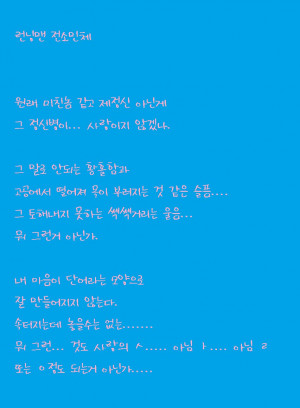 런닝맨 전소민체
원래 미친놈 같고 제정신 아닌게
그 정신병이... 사랑이지 않겠나.
그 말로 안되는 황홀함과
고공에서 떨어져 목이 부러지는 것 같은 슬픔....
그 토해내지 못하는 쌕쌕거리는 울음...
뭐 그런거 아닌가.
내 마음이 단어라는 모양으로
잘 만들어지지 않는다.
속터지는데 놓을수는 없는.......
뭐 그런... 것도 사랑의 ㅅ..... 아님 ㅏ.... 아님 ㄹ
또는 ㅇ정도 되는거 아닌가.....